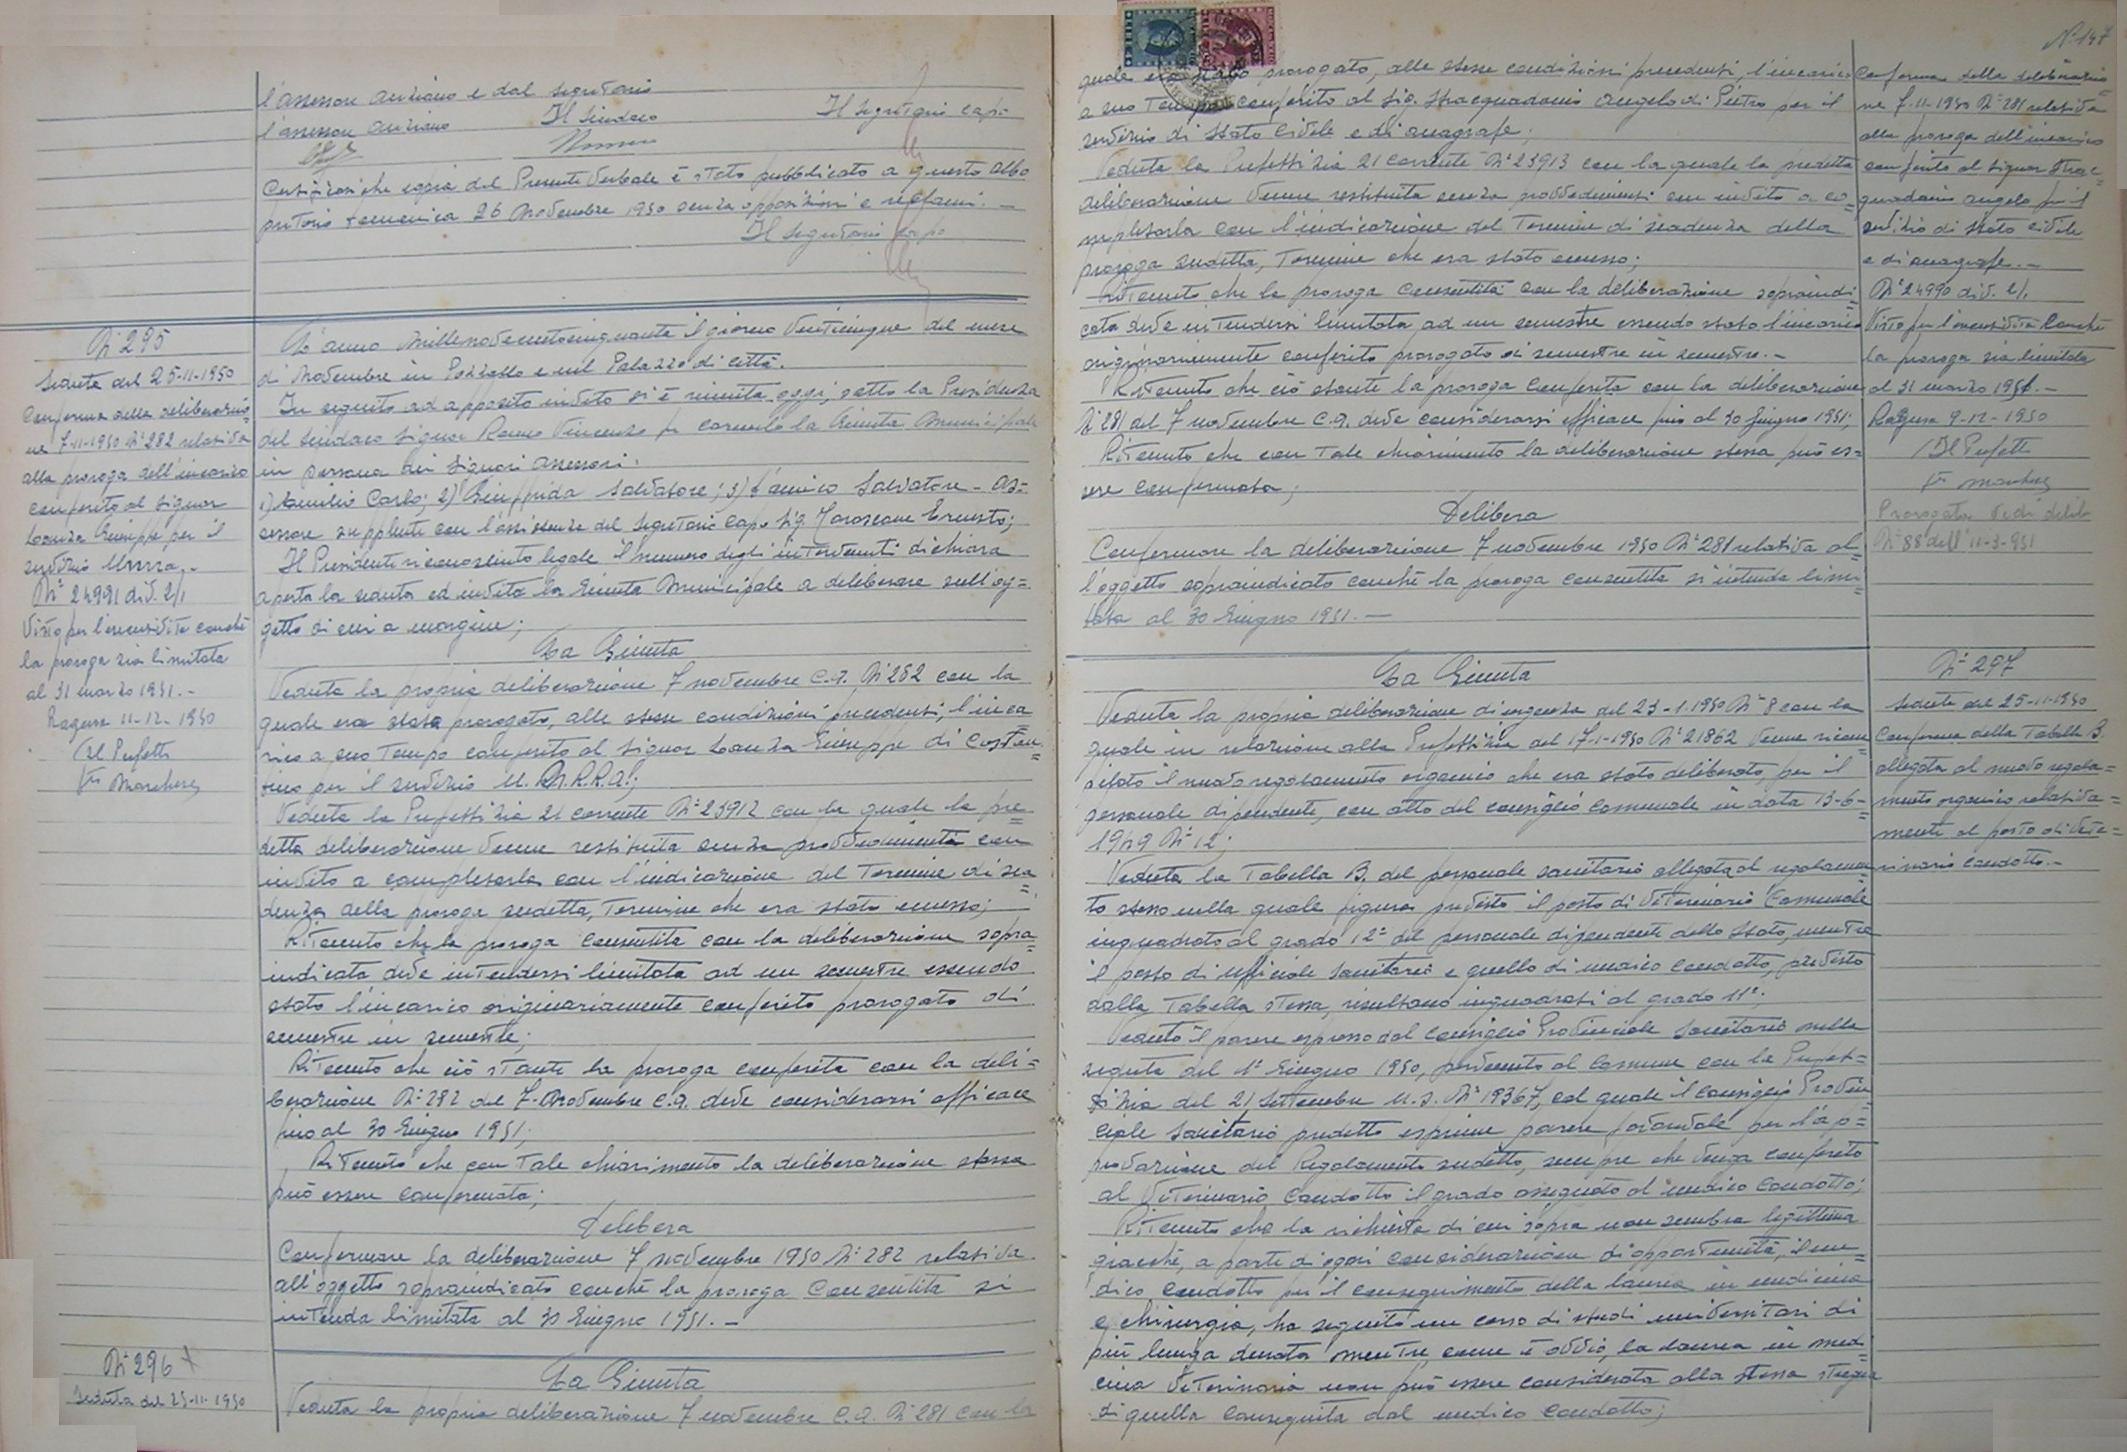 l'assessore anziano e dal segretario
l'assessore anziano Il Sindaco Il Segretario capo
Certificasi che copia del Presente Verbale è stato pubblicato a questo albo
pretorio domenica 26 Novembre 1950 senza opposizioni e reclami. —
Il Segretario capo
N° 295
Seduta del 25-11-1950
Conferma della deliberazio=
ne 7-11-1950 N° 282 relativa
alla proroga dell'incarico
conferito al Signor
Lonza Giuseppe per il
servizio Unrra. -
N° 24991 div. 2/1
Visto per l'esecutività conchè
la proroga sia limitata
al 31 marzo 1951. -
Ragusa 11-12-1950
Il Prefetto
L'anno millenovecentocinquanta il giorno Venticinque del mese
di Novembre in Pozzallo e nel Palazzo di Città.
In seguito ad apposito invito si è riunita oggi, sotto la Presidenza
del Sindaco Signor Vincenzo fu Carmelo la Giunta Municipale
in persona dei Signori Assessori:
1) Carlo; 2) Giuffrida Salvatore; 3) Salvatore - As=
sessore supplente con l'assistenza del Segretario Capo Sig. Ernesto;
Il Presidente riconosciuto legale il numero degli intervenuti dichiara
aperta la seduta ed invita la Giunta Municipale a deliberare sull'og=
getto di cui a margine;
La Giunta
Veduta la propria deliberazione 7 novembre c.a. N° 282 con la
quale era stata prorogato, alle stesse condizioni precedenti, l'inca
rico a suo tempo conferito al Signor Lonza Giuseppe di Costan=
tino per il servizio U.N.R.R.A.;
Veduta la Prefettizia 21 corrente N° 23912 con la quale la pre=
detta deliberazione venne restituita senza provvedimenti con
invito a completarla con l'indicazione del Termine di sca=
denza della proroga sudetta, Termine che era stato omesso;
Ritenuto che la proroga consentita con la deliberazione sopra=
indicata deve intendersi limitata ad un semestre essendo
stato l'incarico originariamente conferito prorogato di
semestre in semestre;
Ritenuto che ciò stante la proroga conferita con la deli=
berazione N° 282 del 7 Novembre c.a. deve considerarsi efficace
fino al 30 Giugno 1951;
Ritenuto che con Tale chiarimento la deliberazione stessa
può essere confermata;
Delibera
Confermare la deliberazione 7 novembre 1950 N° 282 relativa
all'oggetto sopraindicato conchè la proroga consentita si
intenda limitata al 30 Giugno 1951. —
N° 296
Seduta del 25-11-1950
La Giunta
Veduta la propria deliberazione 7 novembre c.a. N° 281 con la
N° 147
quale era stato prorogato, alle stesse condizioni precedenti, l'incarico
a suo Tempo conferito al Sig. Stracquadanio Angelo di Pietro per il
servizio di Stato Civile e di anagrafe;
Veduta la Prefettizia 21 corrente N° 23913 con la quale la predetta
deliberazione venne restituita senza provvedimenti con invito a co=
mpletarla con l'indicazione del Termine di scadenza della
proroga sudetta, Termine che era stato omesso;
Ritenuto che la proroga consentita con la deliberazione sopraindi=
cata deve intendersi limitata ad un semestre essendo stato l'incarico
originariamente conferito prorogato di semestre in semestre. -
Ritenuto che ciò stante la proroga conferita con la deliberazione
N° 281 del 7 novembre c.a. deve considerarsi efficace fino al 30 Giugno 1951;
Ritenuto che con Tale chiarimento la deliberazione stessa può es=
sere confermata;
Delibera
Confermare la deliberazione 7 novembre 1950 N° 281 relativa al=
l'oggetto sopraindicato conchè la proroga consentita si intenda limi=
tata al 30 Giugno 1951. —
Conferma della deliberazio=
ne 7-11-1950 N° 281 relativa
alla proroga dell'incarico
conferito al Signor Strac=
quadanio Angelo per il
servizio di Stato Civile
e di anagrafe. -
N° 24990 div. 2/1.
Visto per l'esecutività conchè
la proroga sia limitata
al 31 marzo 1951. -
Ragusa 9-12-1950
Il Prefetto
Prorogata vedi delib.
N° 88 dell'11-3-951
La Giunta
Veduta la propria deliberazione di urgenza del 23-1-1950 N° 8 con la
quale in relazione alla Prefettizia del 17-1-1950 N° 21862 venne ricom
pilato il nuovo regolamento organico che era stato deliberato, per il
personale dipendente, con atto del consiglio comunale in data 13-6-
1949 N° 12;
Veduta la Tabella B. del personale sanitario allegata al regolamen
to stesso nella quale figura previsto il posto di Veterinario Comunale
inquadrato al grado 12° del personale dipendente dello Stato, mentre
il posto di ufficiale sanitario e quello di medico condotto, previsto
dalla Tabella stessa, risultano inquadrati al grado 11°;
Veduto il parere espresso dal Consiglio Provinciale Sanitario nella
seduta del 1° Giugno 1950, pervenuto al Comune con la Prefet=
tizia del 21 Settembre u.s. N° 19367, col quale il Consiglio Provin
ciale Sanitario predetto esprime parere favorevole per l'ap=
provazione del Regolamento sudetto, sempre che venga conferito
al Veterinario Condotto il grado assegnato al medico condotto;
Ritenuto che la richiesta di cui sopra non sembra legittima
giacchè, a parte di ogni considerazione di opportunità, il me=
dico condotto per il conseguimento della laurea in medicina
e chirurgia, ha seguito un corso di studi universitari di
più lunga durata mentre, come è ovvio, la laurea in medi=
cina Veterinaria non può essere considerata alla stessa stregua
di quella conseguita dal medico condotto;
N° 297
Seduta del 25-11-1950
Conferma della Tabella B.
allegata al nuovo regola=
mento organico relativa=
mente al posto di Vete=
rinario condotto. -